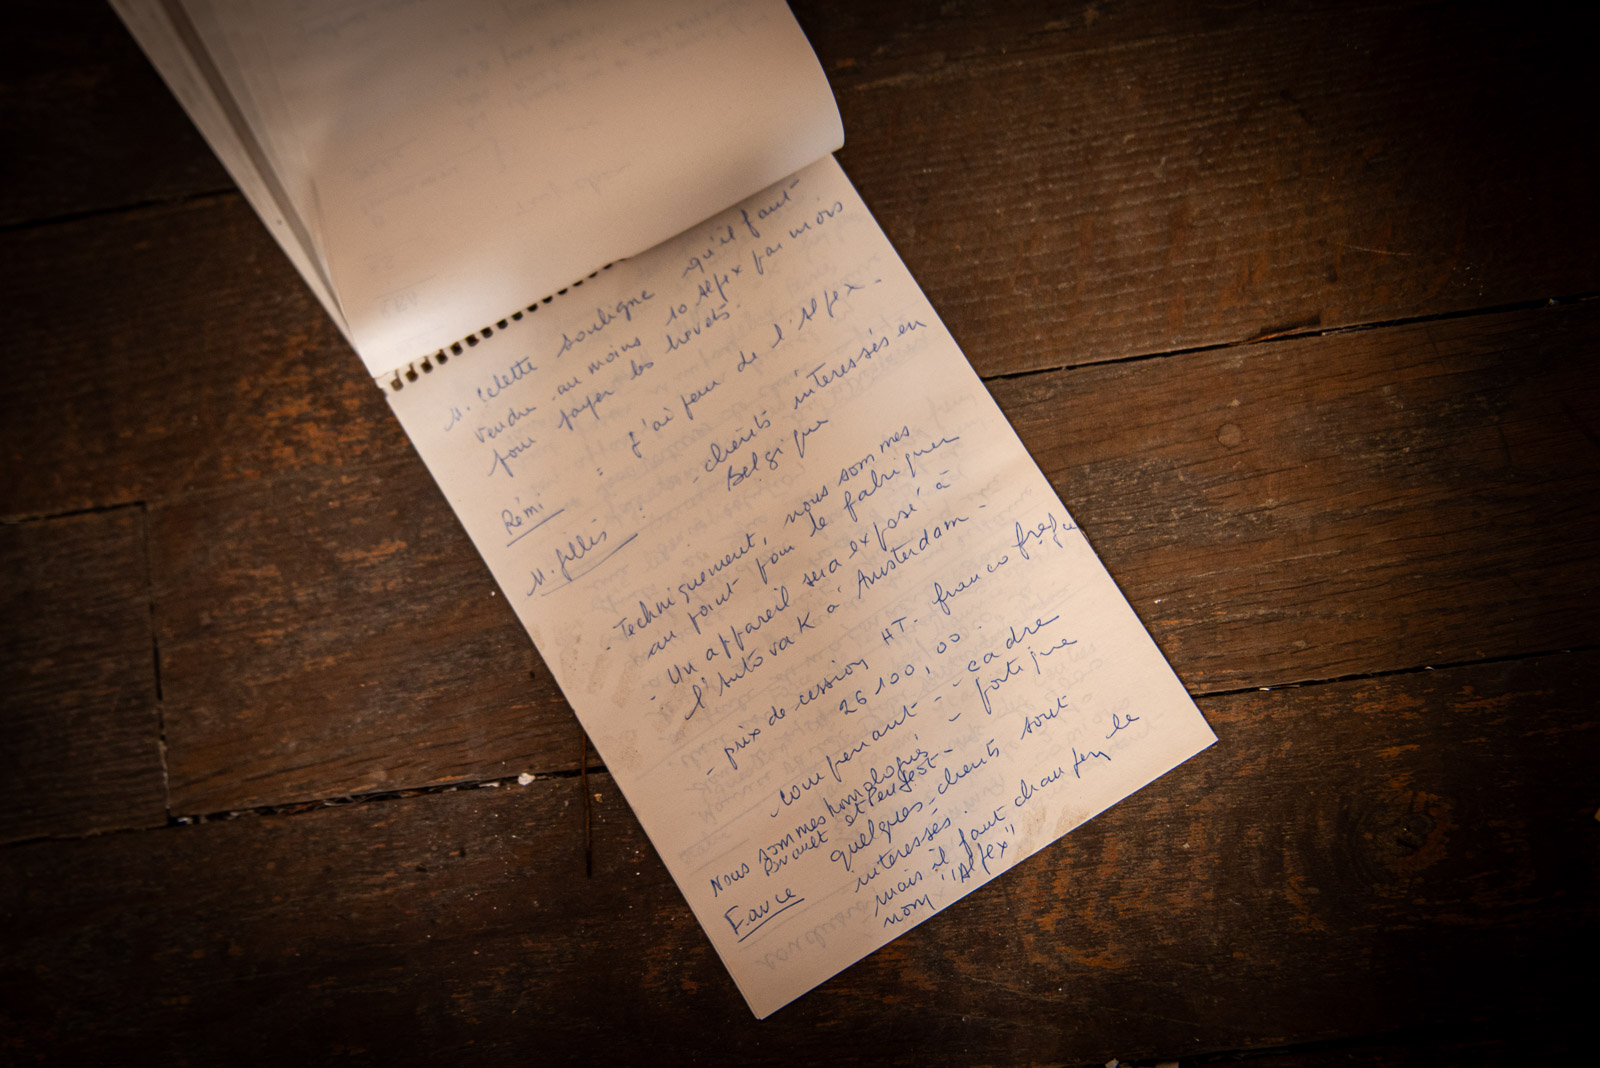 M. Celette souligne qu'il faut
vendre au moins 10 Alfex par mois
pour payer les brevets.
Rémi : J'ai peur de l'Alfex.
M. Gillis : - clients interessés en
Belgique
- Techniquement, nous sommes
au point pour le fabriquer
- Un appareil sera exposé à
l'Autovak à Amsterdam -
- prix de cession HT. franco
26 100,00.
comprenant - - cadre
- portique
Nous sommes homologués
et Peugeot -
France quelques clients sont
interessés.
mais il faut changer le
nom "Alfex"